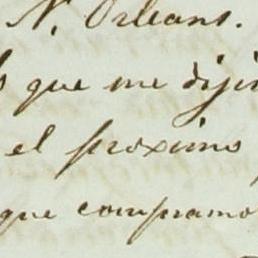 N. Orleans.
que me diji
el proximo
que compramo